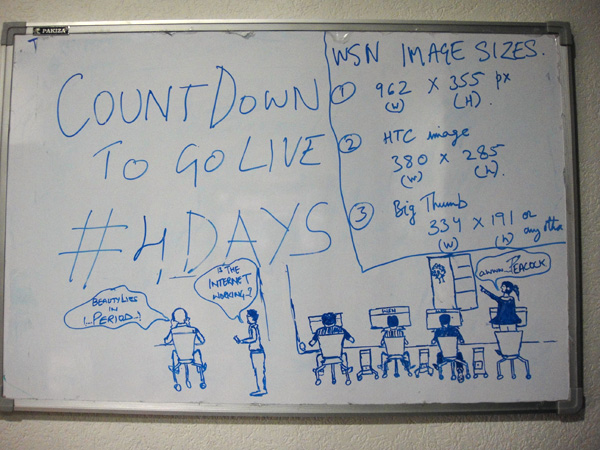 PAKIZA
COUNTDOWN
TO GO LIVE
#4 DAYS
WSN IMAGE SIZES.
① 962 X 355 px
(W) (H).
② HTC image
380 X 285
(W) (h).
③ Big Thumb
334 X 191 or
any other
(W) (h)
BEAUTY LIES
IN
PERIOD
IS THE
INTERNET
WORKING?
awww.. PEACOCK
WSN